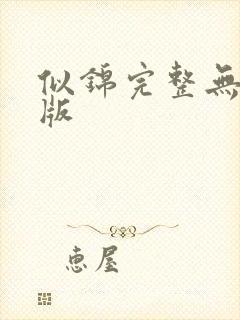 似錦完整無
版
恵屋